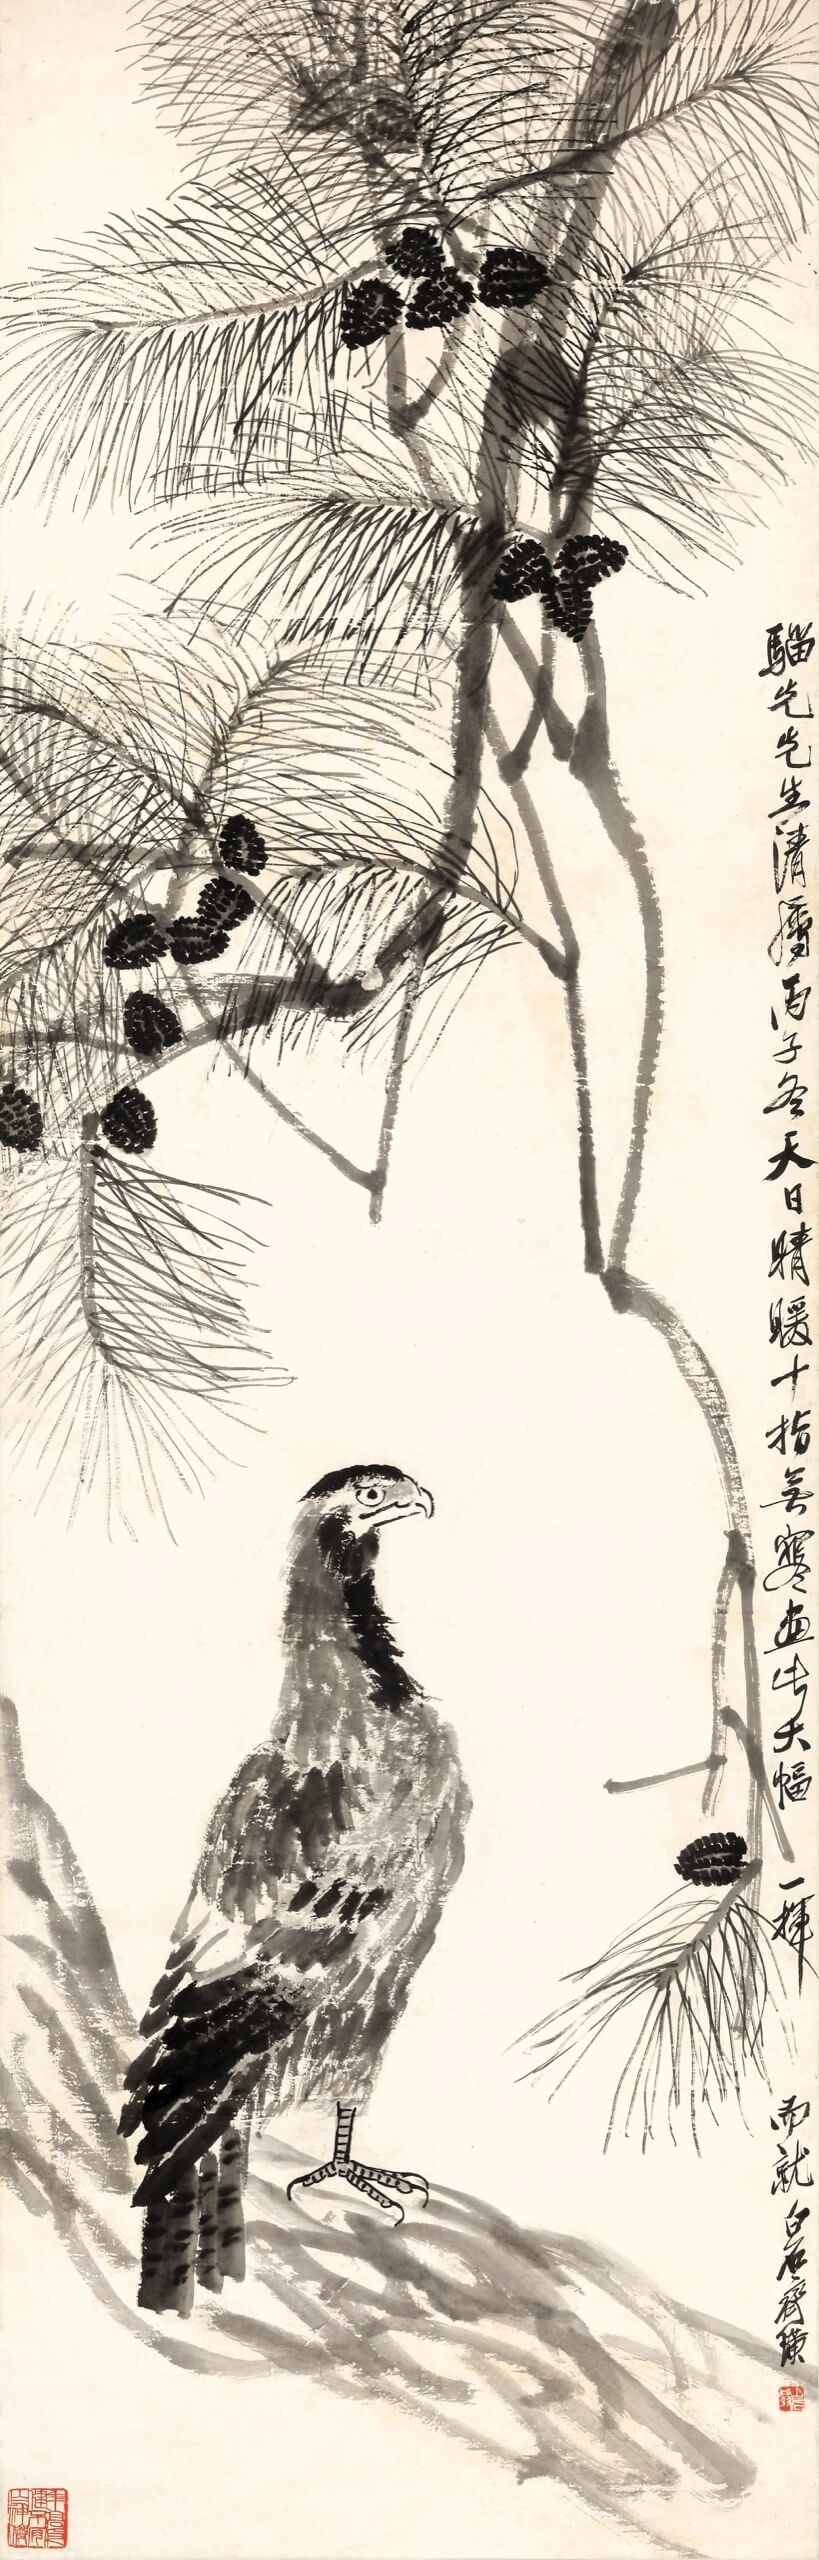 騮先先生清屬丙子冬天日晴暖十指無寒畫此大幅一揮而就白石齊璜